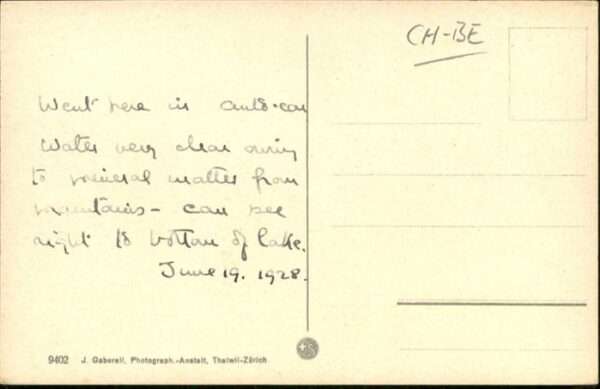 CH-BE
Went here in auto-car
Water very clear owing
to mineral matter from
mountains - can see
right to bottom of lake.
June 19. 1928.
9402 J. Gaberell, Photograph.-Anstalt, Thalwil-Zürich